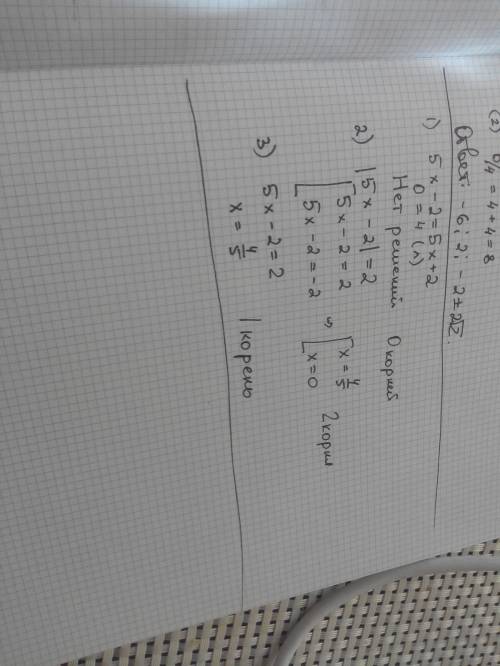 (2) D/4 = 4 + 4 = 8
Ответ: -6; 2; -2 ± 2√2.
1) 5x - 2 = 5x + 2
0 = 4 (л)
Нет решений 0 корней
2) |5x - 2| = 2
[5x - 2 = 2 ⇔ [x = 4/5
[5x - 2 = -2 [x = 0 2 корня
3) 5x - 2 = 2
x = 4/5 1 корень